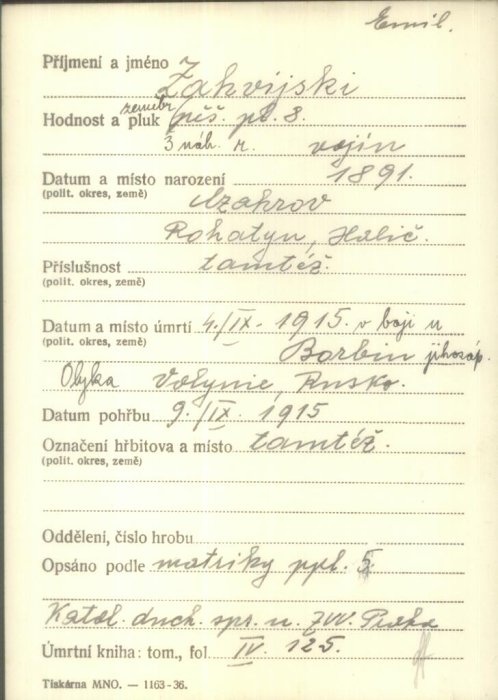 Emil.
Příjmení a jméno Zahvijski
zeměbr.
Hodnost a pluk pěš. pl. 3.
3 náh. r. vojín
Datum a místo narození 1891.
(polit. okres, země)
Czahrov
Rohatyn, Halič.
Příslušnost tamtéž.
(polit. okres, země)
Datum a místo úmrtí 4./IX. 1915. v boji u
(polit. okres, země)
Borbin jihozáp.
Olyka Volynie, Rusko.
Datum pohřbu 9./IX. 1915
Označení hřbitova a místo tamtéž.
(polit. okres, země)
Oddělení, číslo hrobu
Opsáno podle matriky ppl. 5.
Katol. duch. spr. u. ZVV. Praha
Úmrtní kniha: tom., fol. IV. 125.
Tiskárna MNO. — 1163-36.